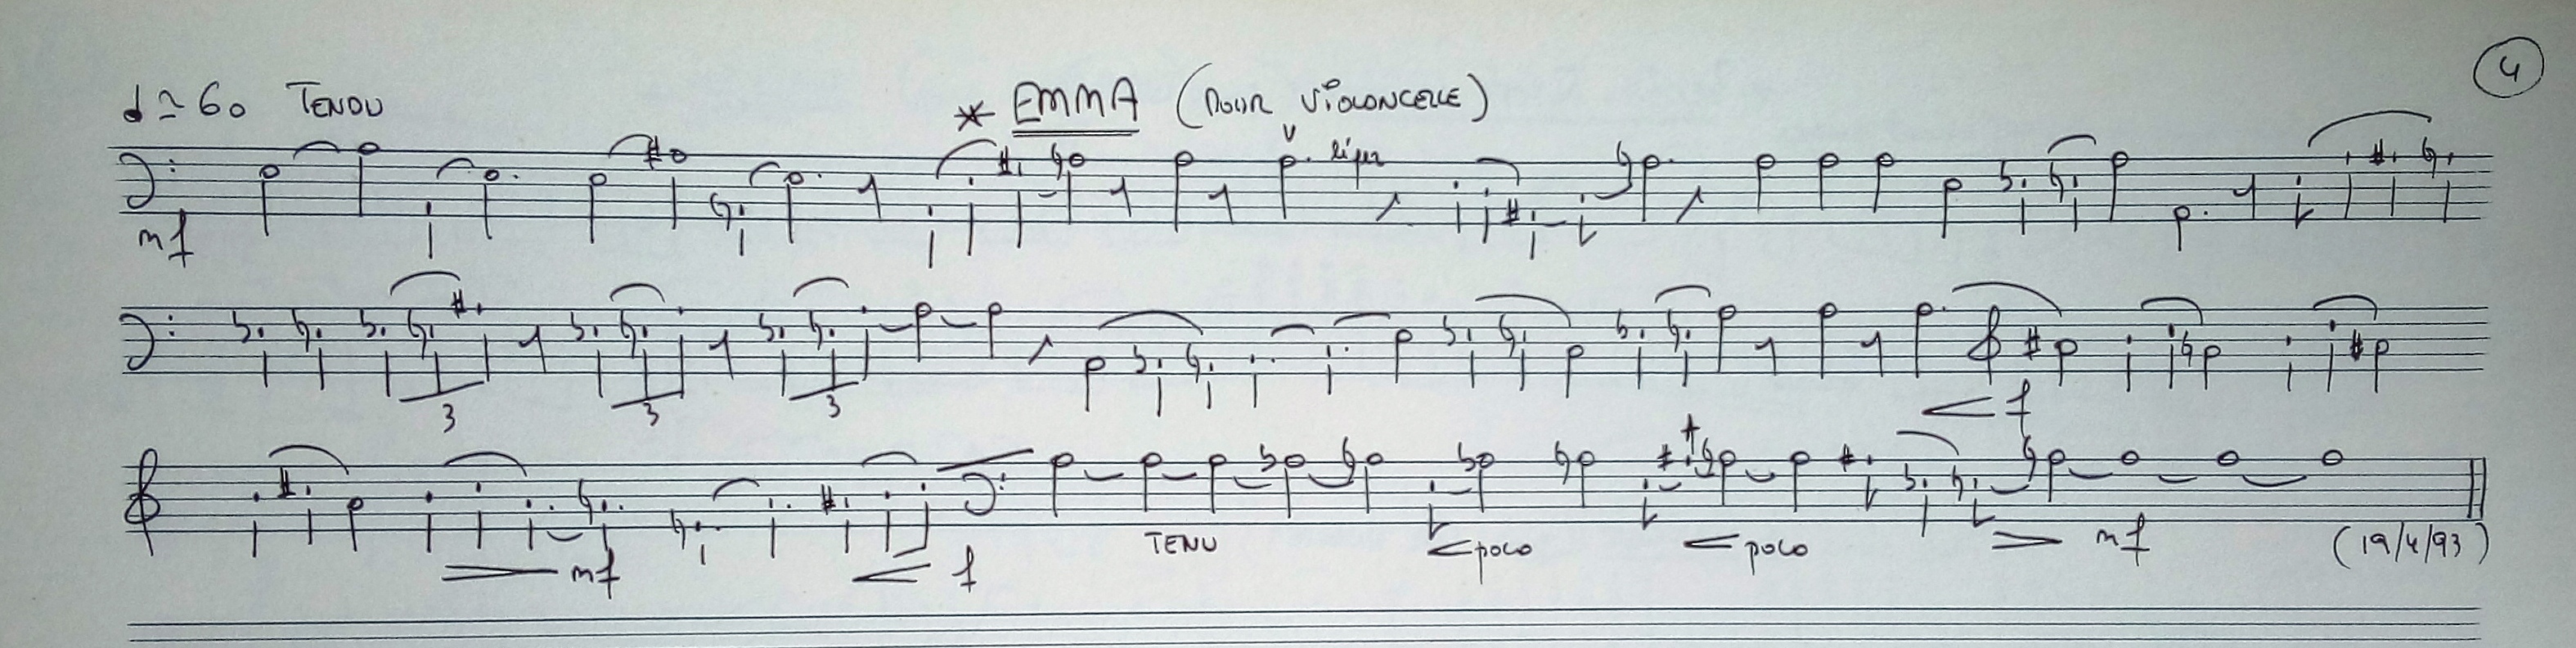 4
♩ ≃ 60 TENDU * EMMA (POUR VIOLONCELLE)
V
mf
3 3 3 < f
TENU <poco <poco > mf (19/4/93)
> mf < f